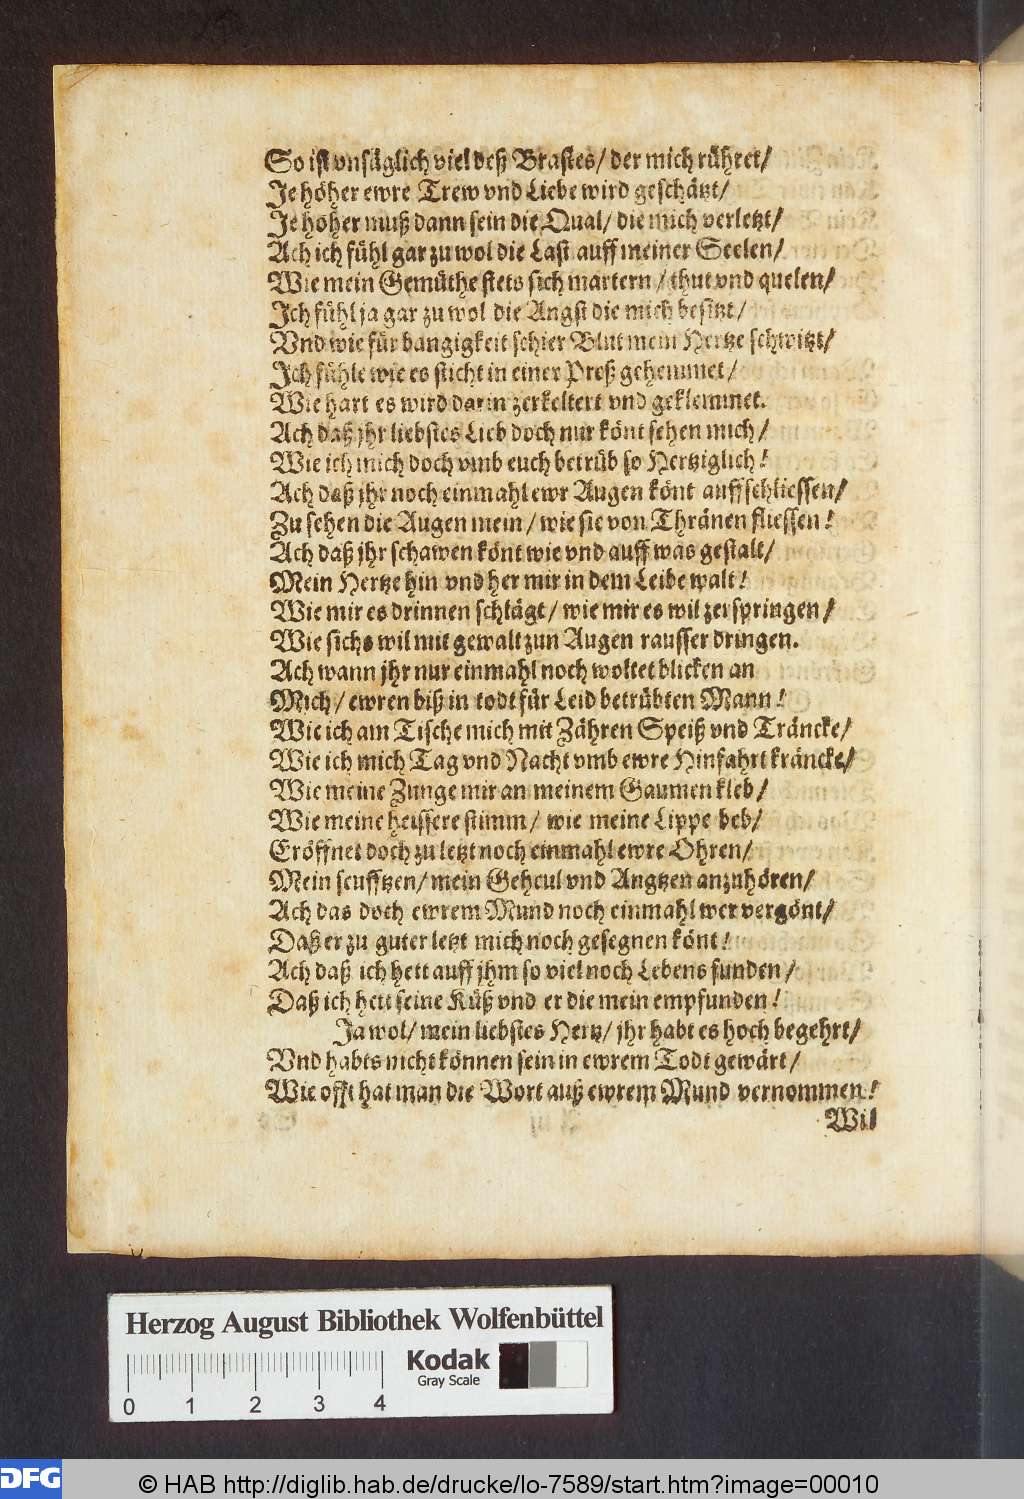 So ist vnsäglich viel deß Brastes/ der mich rühret/
Je höher ewre Trew vnd Liebe wird geschätzt/
Je höher muß dann sein die Qual/ die mich verletzt/
Ach ich fühl gar zu wol die Last auff meiner Seelen/
Wie mein Gemüthe stets sich martern/ thut vnd quelen/
Ich fühl ja gar zu wol die Angst die mich besitzt/
Vnd wie für bangigkeit schier Blut mein Hertze schwitzt/
Ich fühle wie es sticht in einer Preß gehemmet/
Wie hart es wird darin zerkeltert vnd geklemmet.
Ach daß jhr liebstes Lieb doch nur könt sehen mich/
Wie ich mich doch vmb euch betrüb so Hertziglich!
Ach daß jhr noch einmahl ewr Augen könt auffschliessen/
Zu sehen die Augen mein/ wie sie von Thränen fliessen!
Ach daß jhr schawen könt wie vnd auff was gestalt/
Mein Hertze hin vnd her mir in dem Leibe walt!
Wie mir es drinnen schlägt/ wie mir es wil zerspringen/
Wie sichs wil mit gewalt zun Augen rausser dringen.
Ach wann jhr nur einmahl noch woltet blicken an
Mich/ ewren biß in todt für Leid betrübten Mann!
Wie ich am Tische mich mit Zähren Speiß vnd Träncke/
Wie ich mich Tag vnd Nacht vmb ewre Hinfahrt kräncke/
Wie meine Zunge mir an meinem Gaumen kleb/
Wie meine heissere stimm/ wie meine Lippe beb/
Eröffnet doch zu letzt noch einmahl ewre Ohren/
Mein seufftzen/ mein Geheul vnd Angtzen anzuhören/
Ach das doch ewrem Mund noch einmahl wer vergönt/
Daß er zu guter letzt mich noch gesegnen könt!
Ach daß ich hett auff jhm so viel noch Lebens funden/
Daß ich hett seine Küß vnd er die mein empfunden!
Ja wol/ mein liebstes Hertz/ jhr habt es hoch begehrt/
Vnd habts nicht können sein in ewrem Todt gewärt/
Wie offt hat man die Wort auß ewrem Mund vernommen!
Wil
Herzog August Bibliothek Wolfenbüttel
Kodak
Gray Scale
0 1 2 3 4
DFG
© HAB http://diglib.hab.de/drucke/lo-7589/start.htm?image=00010